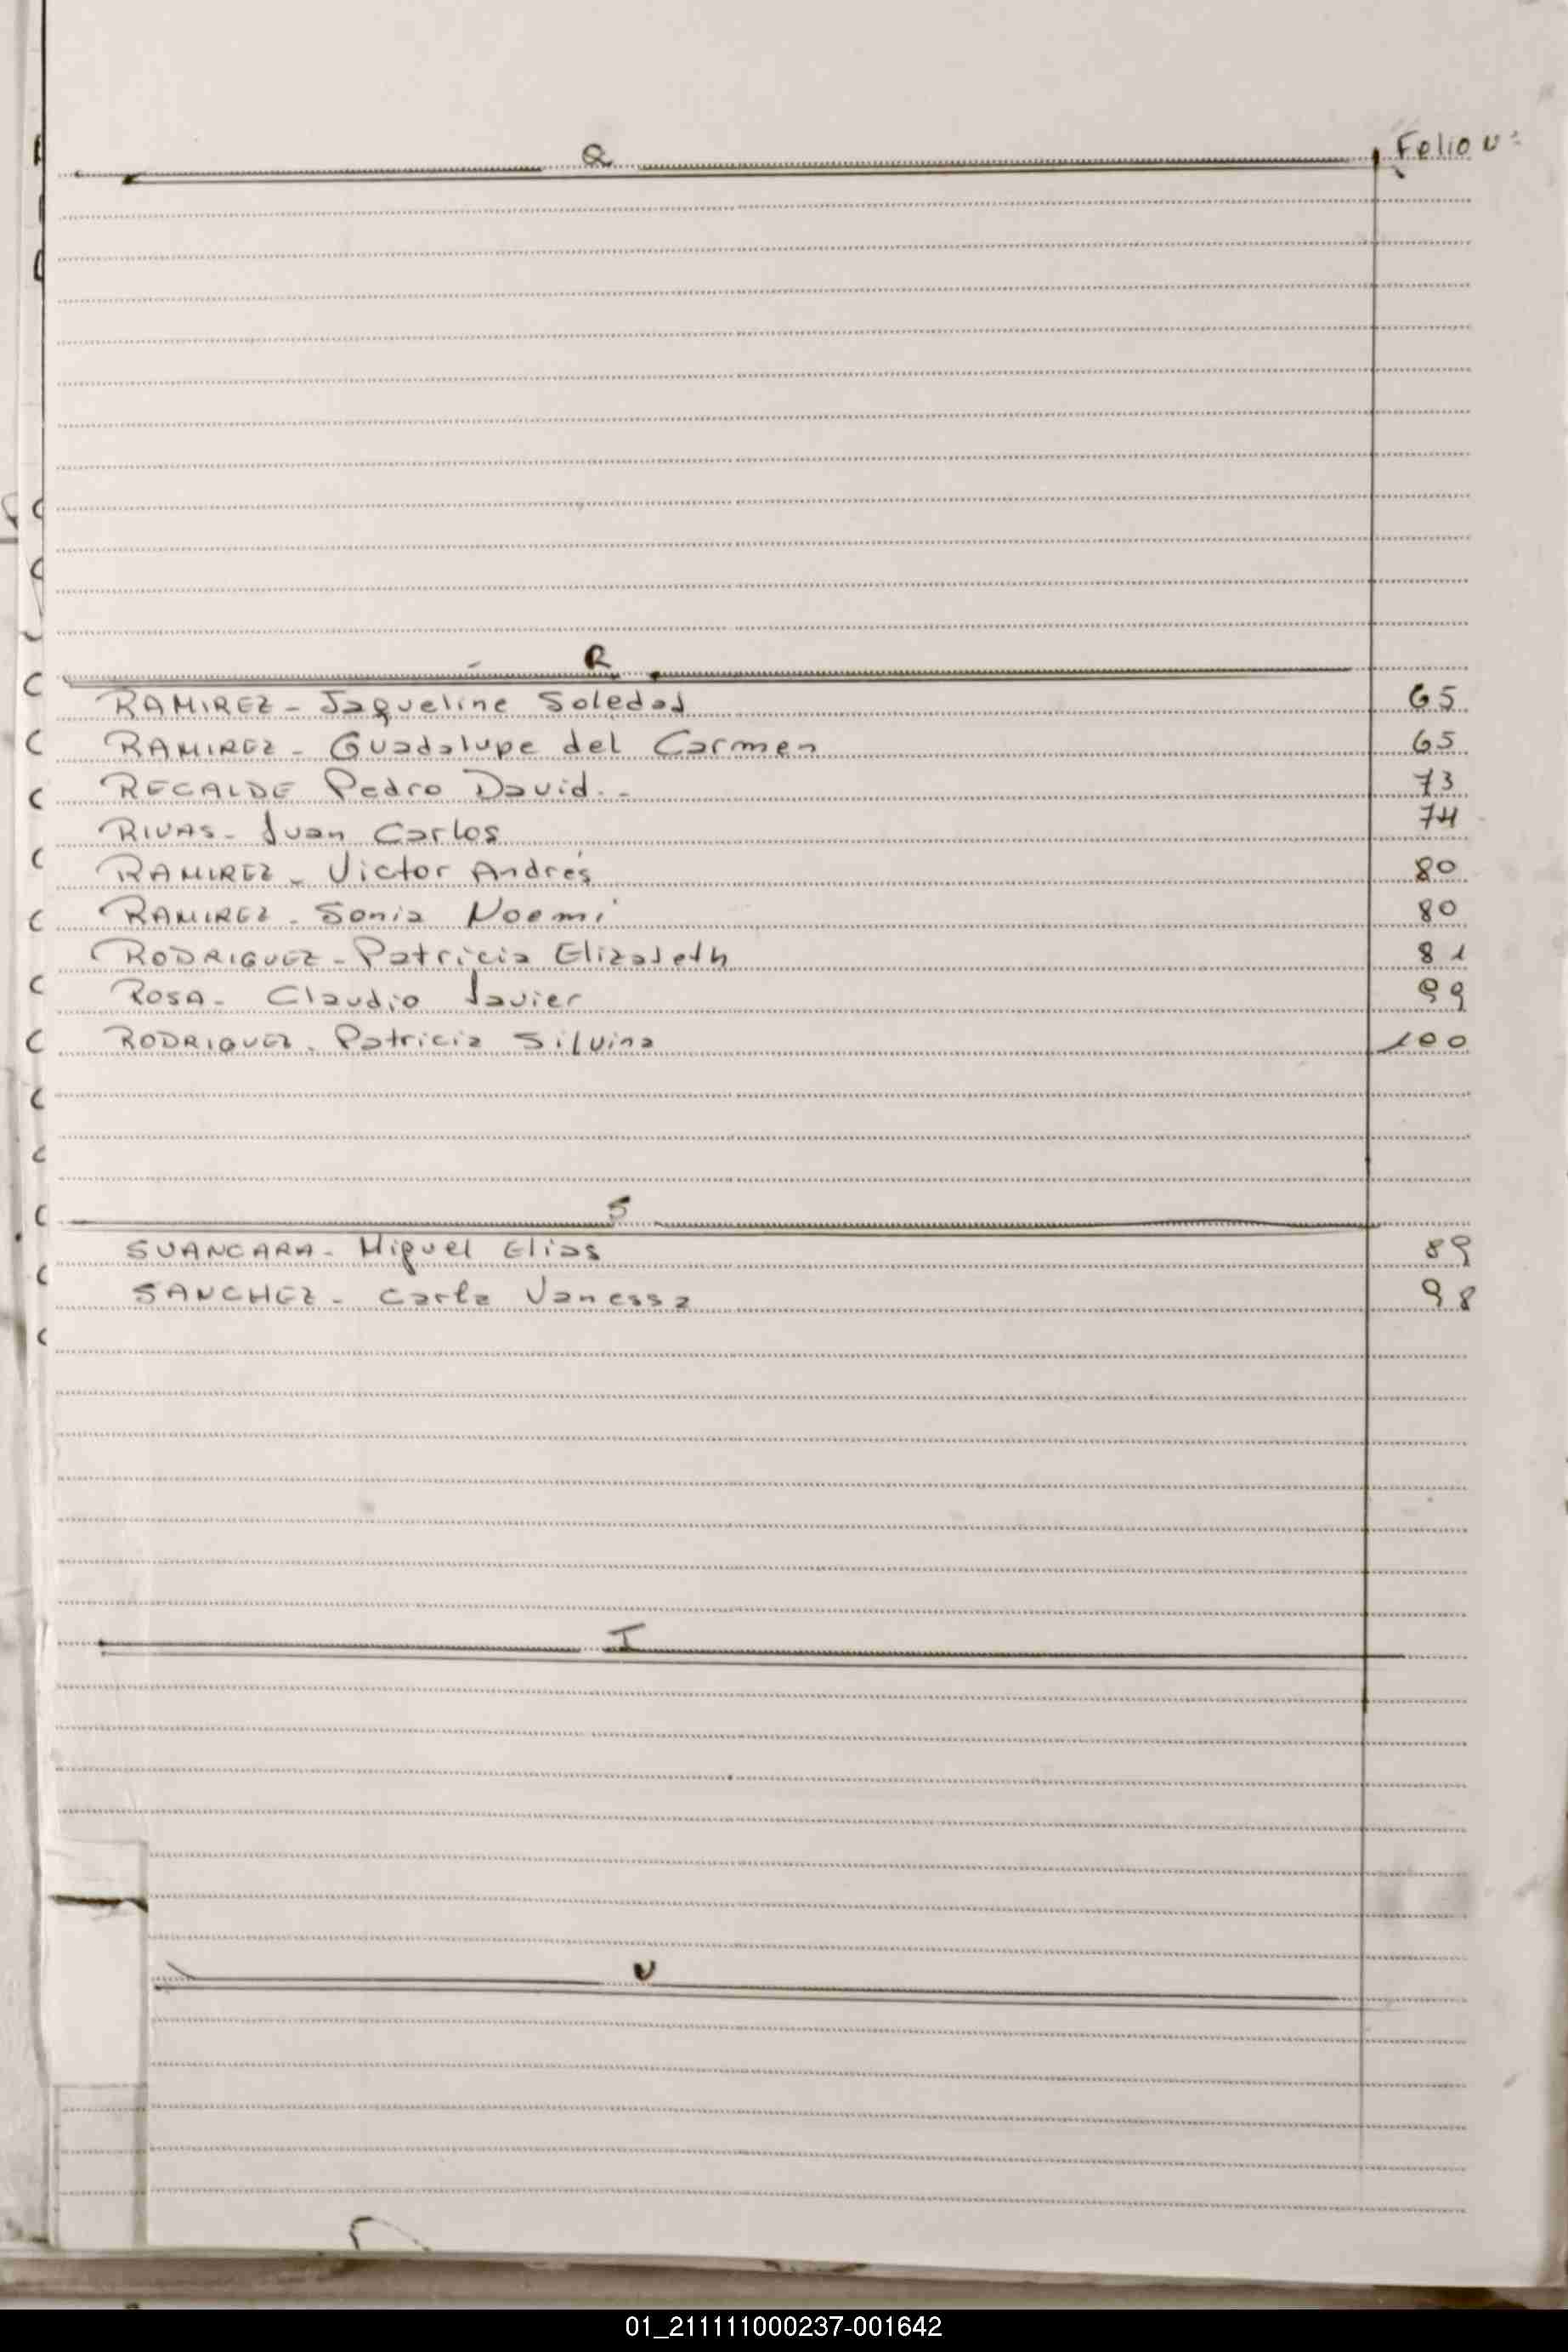 Q Folio Nº
R
RAMIREZ - Jaqueline Soledad 65
RAMIREZ - Guadalupe del Carmen 65
RECALDE Pedro David.- 73
RIVAS - Juan Carlos 74
RAMIREZ - Victor Andrés 80
RAMIREZ - Sonia Noemí 80
RODRIGUEZ - Patricia Elizabeth 81
ROSA - Claudio Javier 99
RODRIGUEZ. Patricia Silvina 100
S
SUANCARA - Miguel Elias 89
SANCHEZ - Carla Vanessa 98
T
U
01_211111000237-001642